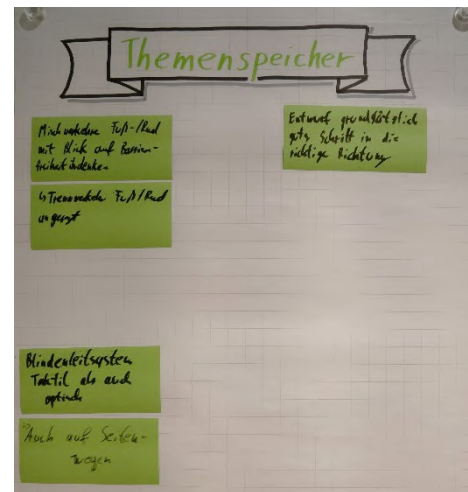 Themenspeicher
Mischverkehr Fuß-/Rad
mit Blick auf Barriere-
freiheit
↳ Trennverkehr Fuß/Rad
Entwurf grundsätzlich
guter Schritt in die
richtige Richtung
Blindenleitsystem
Taktil als auch
optisch
Auch auf Seiten-
wegen